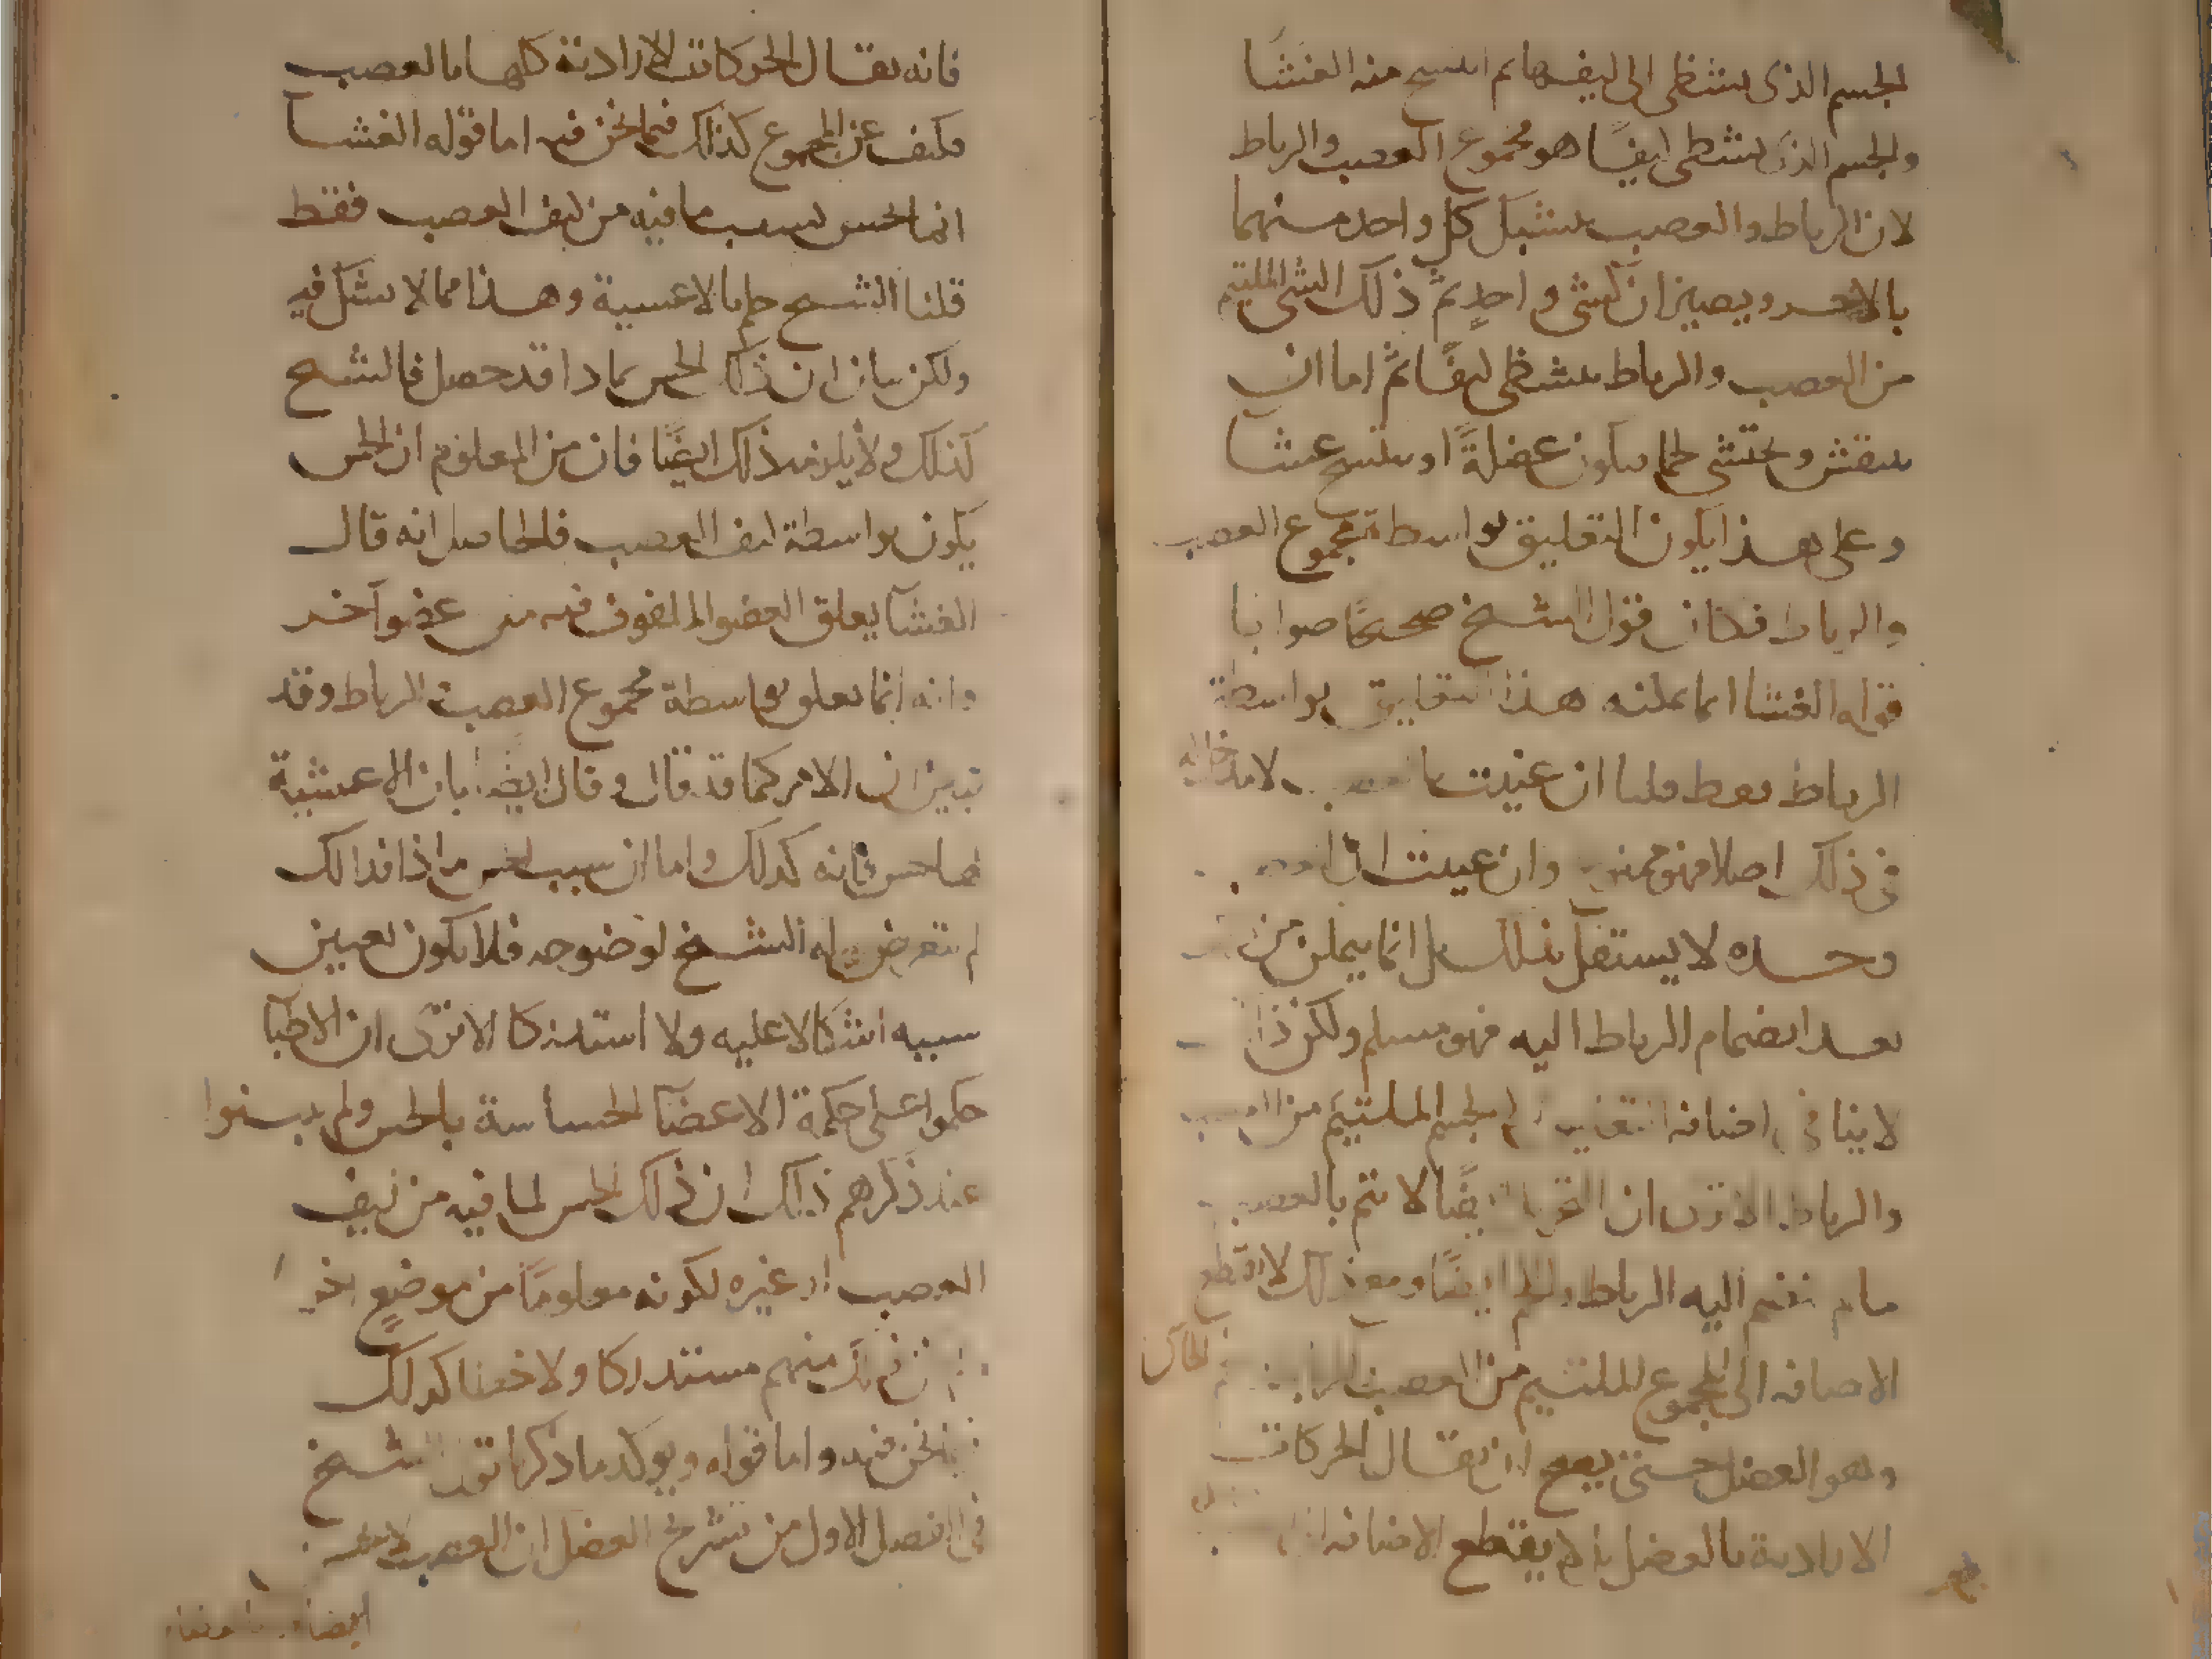 الجسم الذى يتشظى الى ليفها ثم انتسج منه الغشا
والجسم الذى يتشظى ليفا هو مجموع العصب والرباط
لان الرباط والعصب يتشبك كل واحد منهما
بالاخر ويصيران كشى واحد ثم ذلك الشى الملتئم
من العصب والرباط يتشظى ليفا ثم اما ان
ينتفش ويحتشى لحما فيكون عضلة او ينتسج غشا
وعلى هذا يكون التعليق بواسطة مجموع العصب
والرباط فكان قول الشيخ صحيحا صوابا
قوله الغشا انما يمكنه هذا التعليق بواسطة
الرباط فقط قلنا ان عنيت لا مدخل له
فى ذلك اصلا فهو ممنوع وان عنيت ان العصب
وحده لا يستقل بذلك بل انما يمكن من
بعد انضمام الرباط اليه فهو مسلم ولكن
لا ينافى اضافة التعليق الجسم الملتئم من العصب
والرباط الا ترى ان ايضا لا تتم بالعصب
ما لم ينضم اليه الرباط واللحم ايضا ومع ذلك لا تقطع
الاضافة الى المجموع الملتئم من العصب
وهو العضل حتى يصح ان يقال الحركات
الارادية بالعضل بل لا يقتطع الاضافة
فانه يقال الحركات الارادية كلها بالعصب
فكيف عن المجموع كذلك فيما نحن فيه اما قوله الغشا
انما يحس بسبب ما فيه من ليف العصب فقط
قلنا الشيخ حكم بالاغشية وهذا مما لا يشك فيه
ولكن بيان ان ذلك الحس بماذا قد حصل فالشيخ
كذلك ولا يلزمه ذلك ايضا فان من المعلوم ان الحس
يكون بواسطة ليف العصب فالحاصل انه قال
الغشا يعلق العضو الملفوف فيه من عضو آخر
وانه انما يعلق بواسطة مجموع العصب الرباط وقد
تبين ان الامر كما قد قال وقال ايضا بان الاغشية
لها حس فانه كذلك واما ان سبب الحس ماذا فذالك
لم يتعرض له الشيخ لوضوحه فلا يكون تعيين
سببه اشكالا عليه ولا استدراكا الا ترى ان الاطبا
حكموا على حكمة الاعضا الحساسة بالحس ولم يبينوا
عند ذكرهم ذلك ان ذلك الحس لما فيه من ليف
العصب او غيره لكونه معلوما من موضع اخر
ذلك منهم مستدركا ولا خفا كذلك
نحن فيه واما قوله ويوكد ما ذكرنا قول الشيخ
فى الفصل الاول من تشريح العضل ان العصب
ايضا